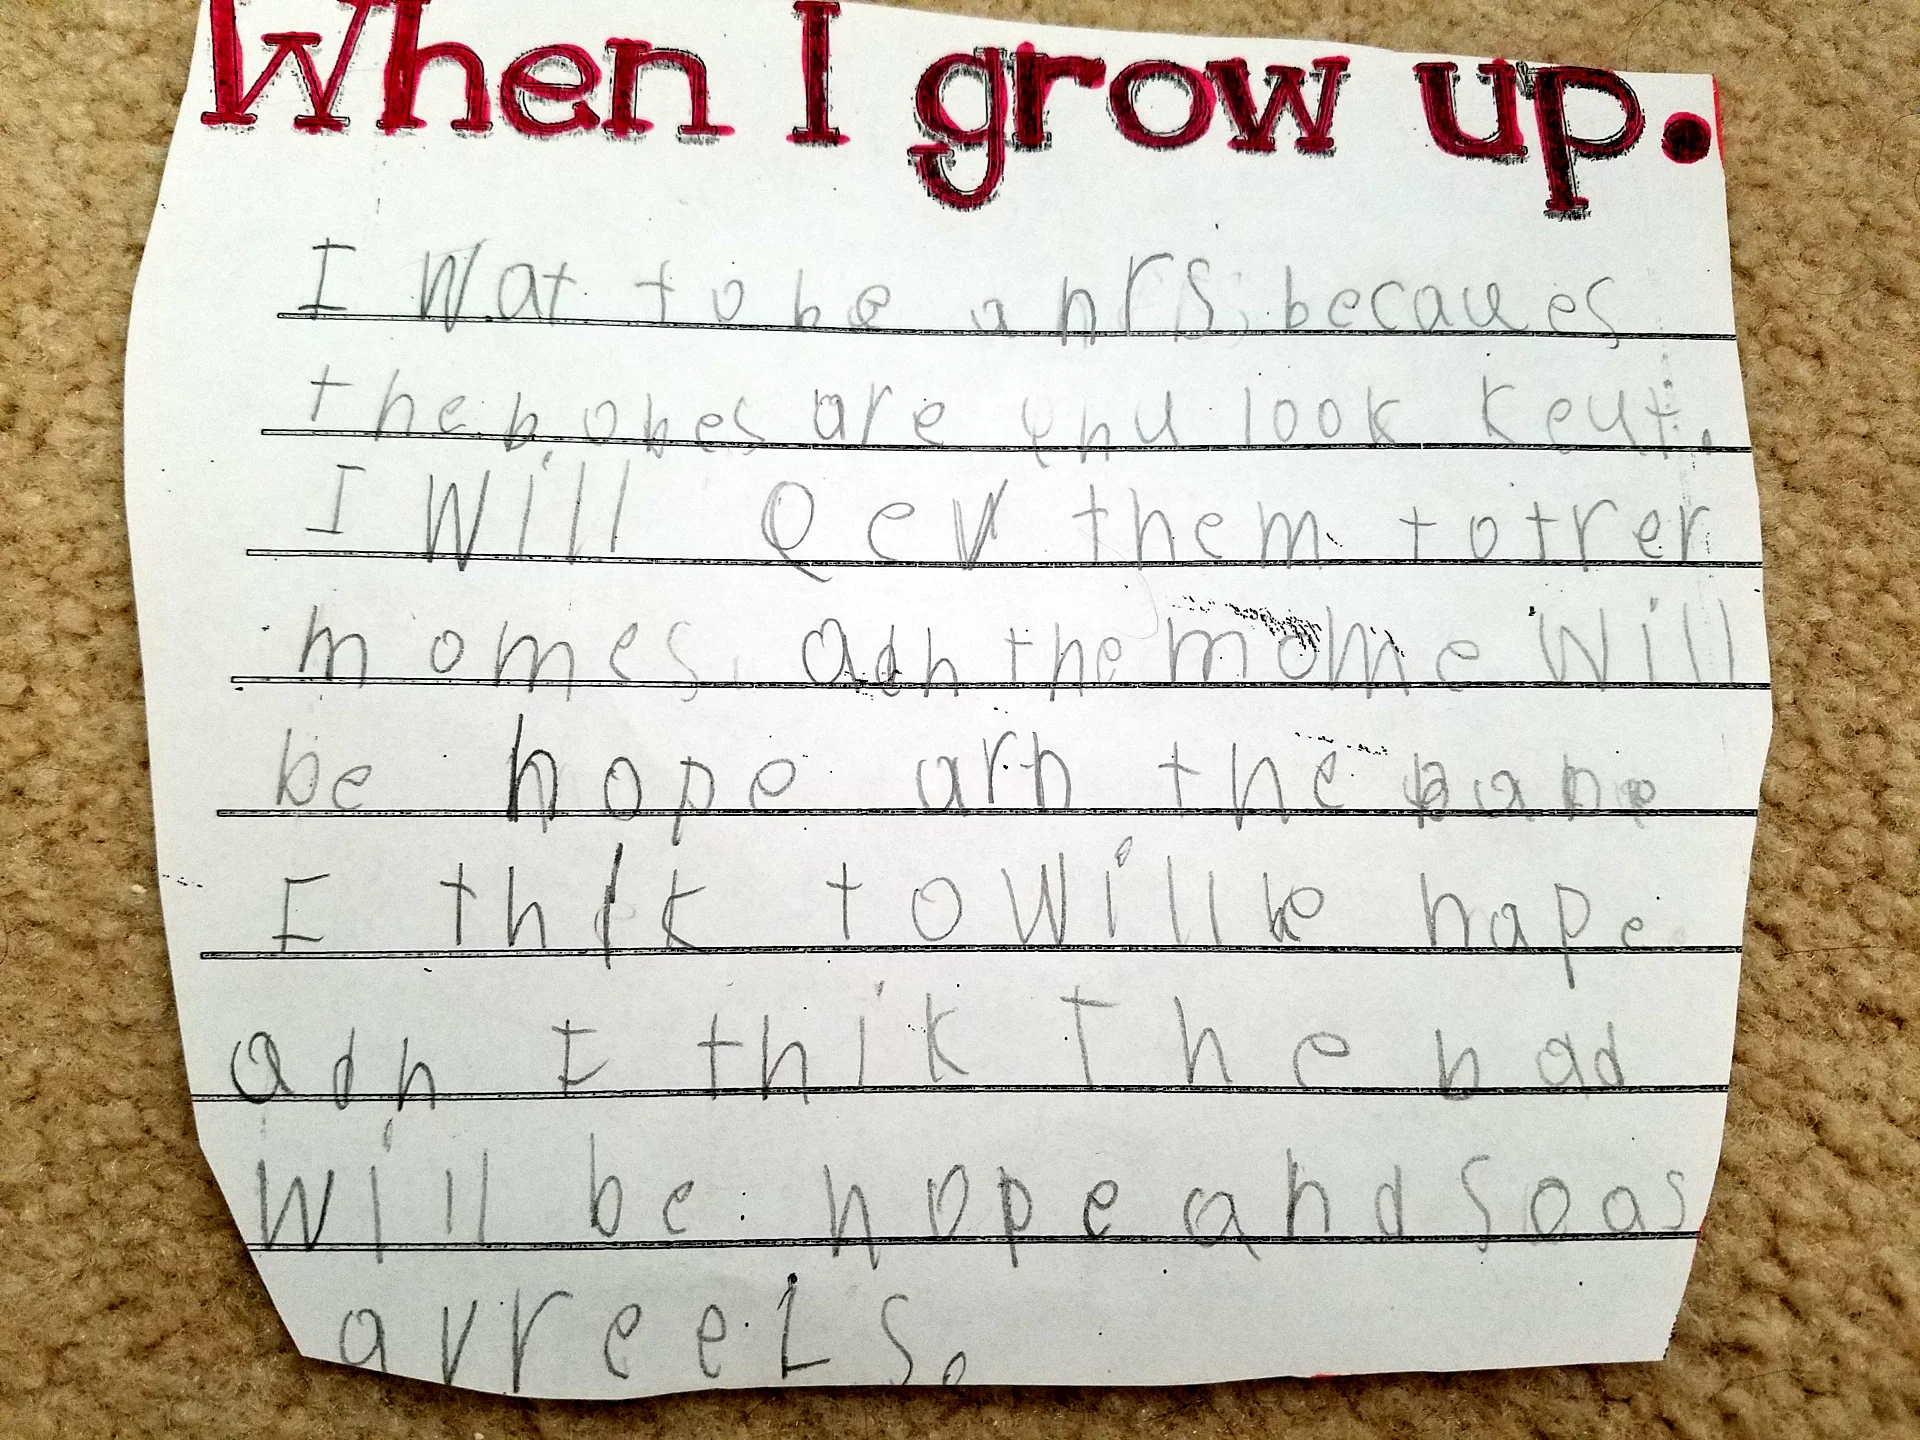 When I grow up.
I Wat to be a nrs becaues
the bobes are look keut.
I Will Qev them to trer
momes. adn the mome Will
be hope arn the
I thik to Will be hape
adn I thik The bad
Will be hope and soas
avreels.